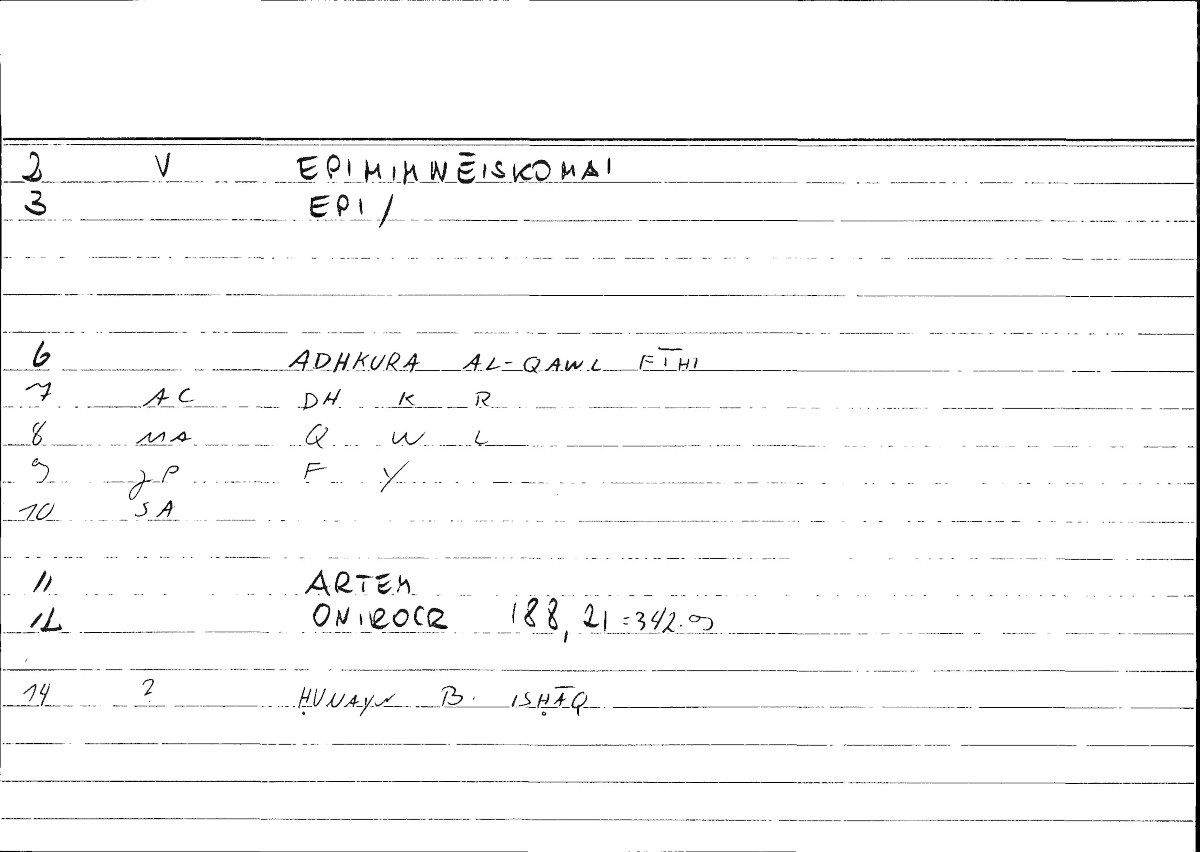 2 V EPIMIMNĒISKOMAI
3 EPI/
6 ADHKURA AL-QAWL FĪHI
7 AC DH K R
8 MA Q W L
9 JP F Y
10 SA
11 ARTEM
12 ONIROCR 188,21=342.9
14 ? ḤUNAYN B. ISḤĀQ